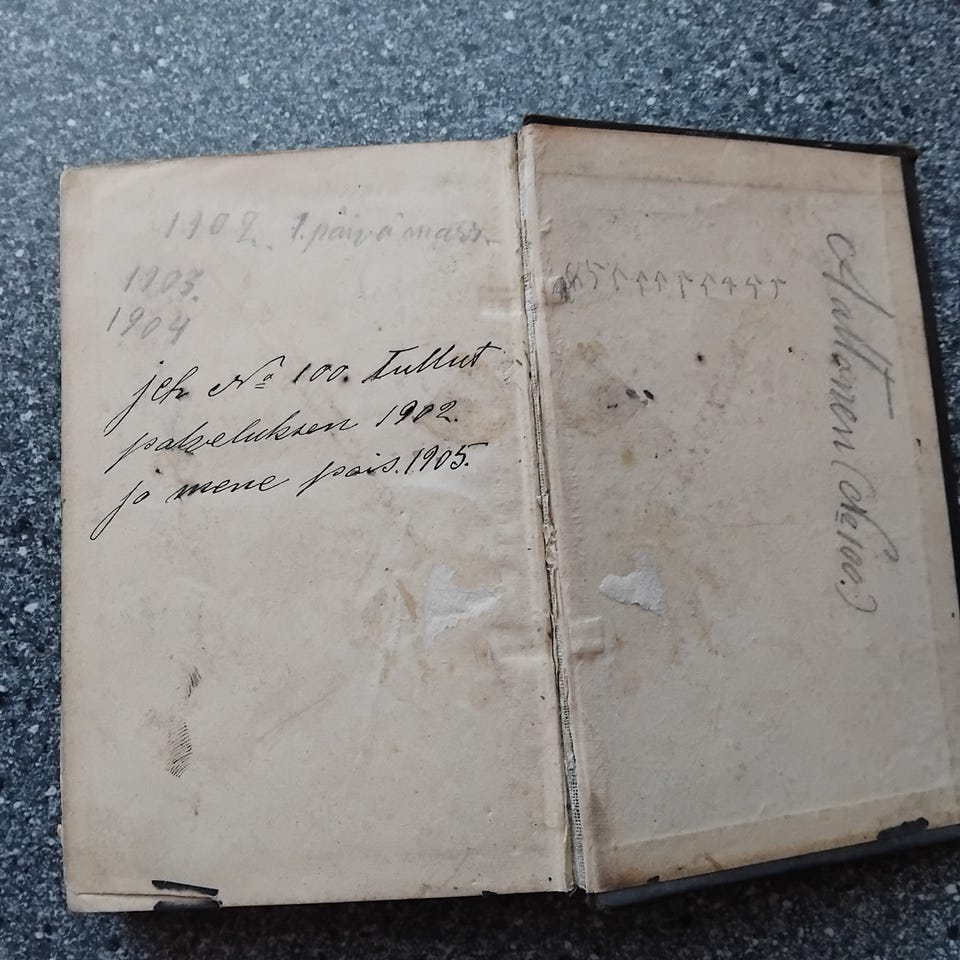 1902. 1. päivä mars.
1903.
1904
jek № 100. Tullut
palveluksen 1902.
ja mene pois. 1905.
Aaltonen (№ 100.)